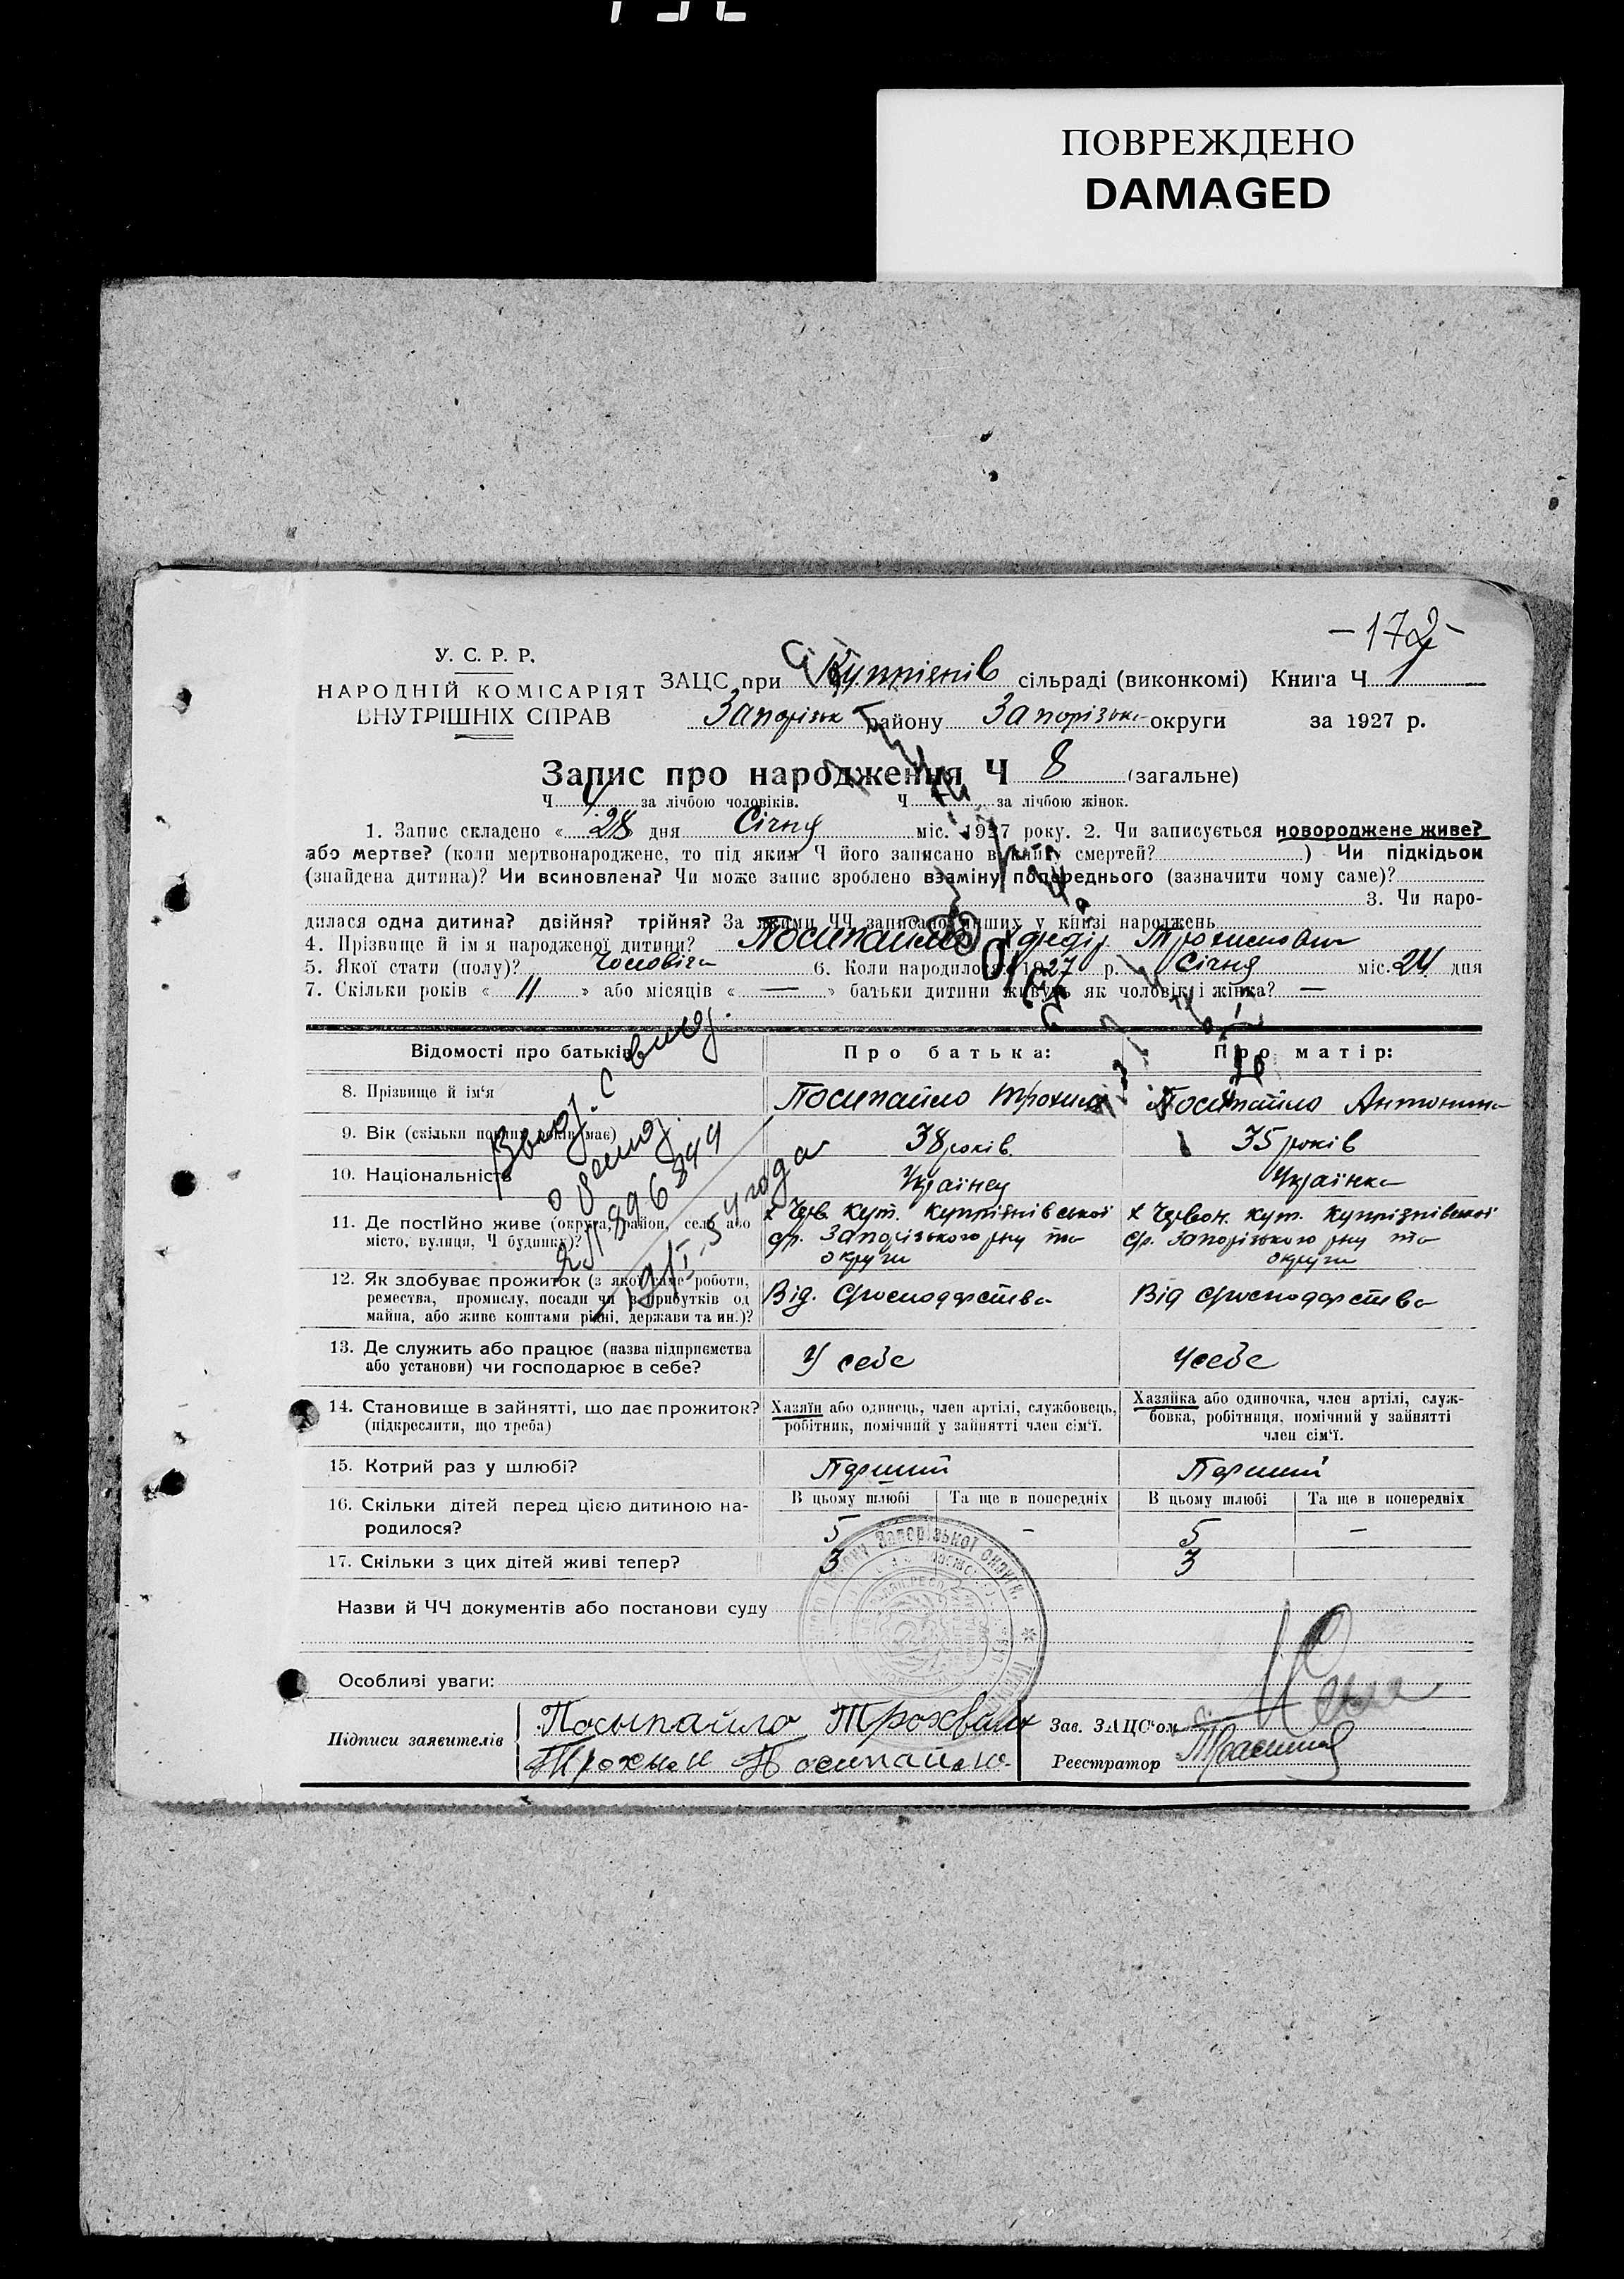 ПОВРЕЖДЕНО
DAMAGED
-172-
У. С. Р. Р.
НАРОДНІЙ КОМІСАРІЯТ
ВНУТРІШНІХ СПРАВ
ЗАЦС при Купріянів сільраді (виконкомі) Книга Ч
Запорізьк району Запорізьк округи за 1927 р.
Запис про народження Ч 8 (загальне)
Ч за лічбою чоловіків. Ч за лічбою жінок.
1. Запис складено « 28 » дня Січня міс. 1927 року. 2. Чи записується новороджене живе?
або мертве? (коли мертвонароджене, то під яким Ч його записано в книгу смертей? ) Чи підкідьок
(знайдена дитина)? Чи всиновлена? Чи може запис зроблено взаміну попереднього (зазначити чому саме)?
3. Чи наро-
дилася одна дитина? двійня? трійня? За якими ЧЧ записано инших у книзі народжень
4. Прізвище й ім'я народженої дитини? Посипайло Федір Трохимович
5. Якої стати (полу)? Чоловіча 6. Коли народилося? 1927 р. Січня міс. 24 дня
7. Скільки років « 11 » або місяців « — » батьки дитини живуть як чоловік і жінка? —
Відомості про батьків Про батька: Про матір:
8. Прізвище й ім'я Посипайло Трохим Посипайло Антонина
9. Вік (скільки повних років має) 38 років 35 років
10. Національність Українец Українка
11. Де постійно живе (округа, район, село або місто, вулиця, Ч будинку)?
х Черв. Кут. Купріянівської с/р. Запорізького р-ну та округи
х Червон. Кут. Купріянівської с/р. Запорізького р-ну та округи
12. Як здобуває прожиток (з якої саме роботи, ремества, промислу, посади чи з прибутків од майна, або живе коштами рідні, держави та ин.)?
Від. С/господарства Від С/господарства
13. Де служить або працює (назва підприємства або установи) чи господарює в себе? У себе У себе
14. Становище в зайнятті, що дає прожиток? (підкреслити, що треба)
Хазяїн або одинець, член артілі, службовець, робітник, помічний у зайнятті член сім'ї.
Хазяйка або одиночка, член артілі, служ-
бовка, робітниця, помічний у зайнятті
член сім'ї.
15. Котрий раз у шлюбі? Перший Перший
16. Скільки дітей перед цією дитиною на-
родилося?
В цьому шлюбі Та ще в попередніх В цьому шлюбі Та ще в попередніх
5 - 5 -
17. Скільки з цих дітей живі тепер? 3 3
Назви й ЧЧ документів або постанови суду
Особливі уваги:
Підписи заявителів
Посыпайло
Трохим Посипайло
Зав. ЗАЦС'ом
Реєстратор